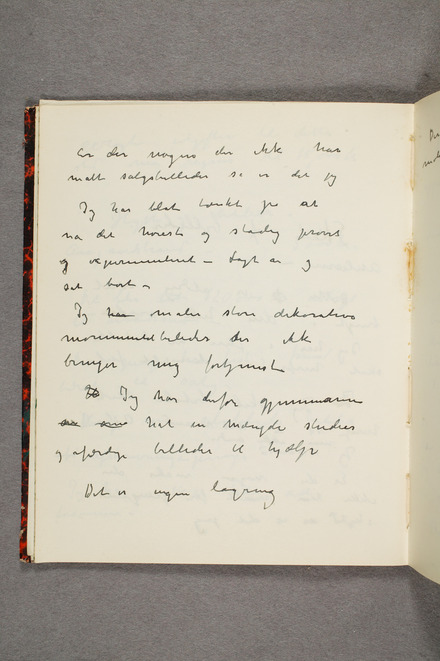 er der nogen der ikke har
malt salgsbilleder så er det jeg
Jeg har blot tænkt på at
nå det høieste og stadig prøvet
og experimenteret – lagt an og
sat bort –
Jeg har maler store dekorative
monumentalbilleder der ikke
bringer mig fortjeneste
Jeg har derfor gjennem
hat en mængde studier
og ufærdige billeder til hjælp
Det er ingen lagring